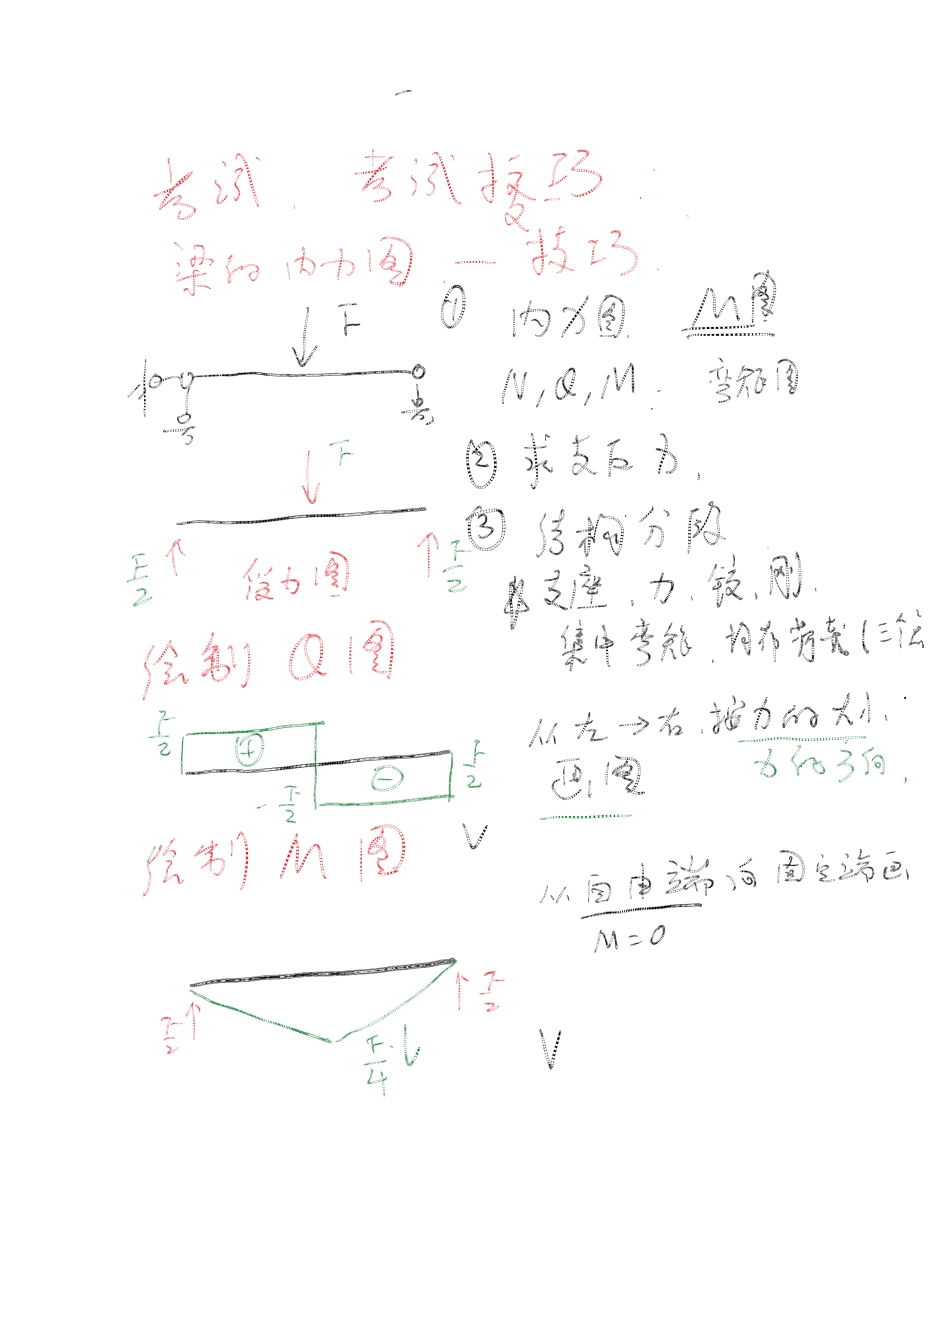 考试 考试技巧
梁的内力图 — 技巧
F
① 内力图 M图
N,Q,M. 弯矩图
② 求支反力,
F
③ 结构分段
F/2 受力图 F/2
支座、力、铰、刚、
集中弯矩、均布荷载(三位
绘制 Q图
从左→右,按力的大小、
力的方向,
画图
F/2 + − F/2
-F/2
绘制 M图
从自由端向固定端画
M=0
F/2 F/2
F/4